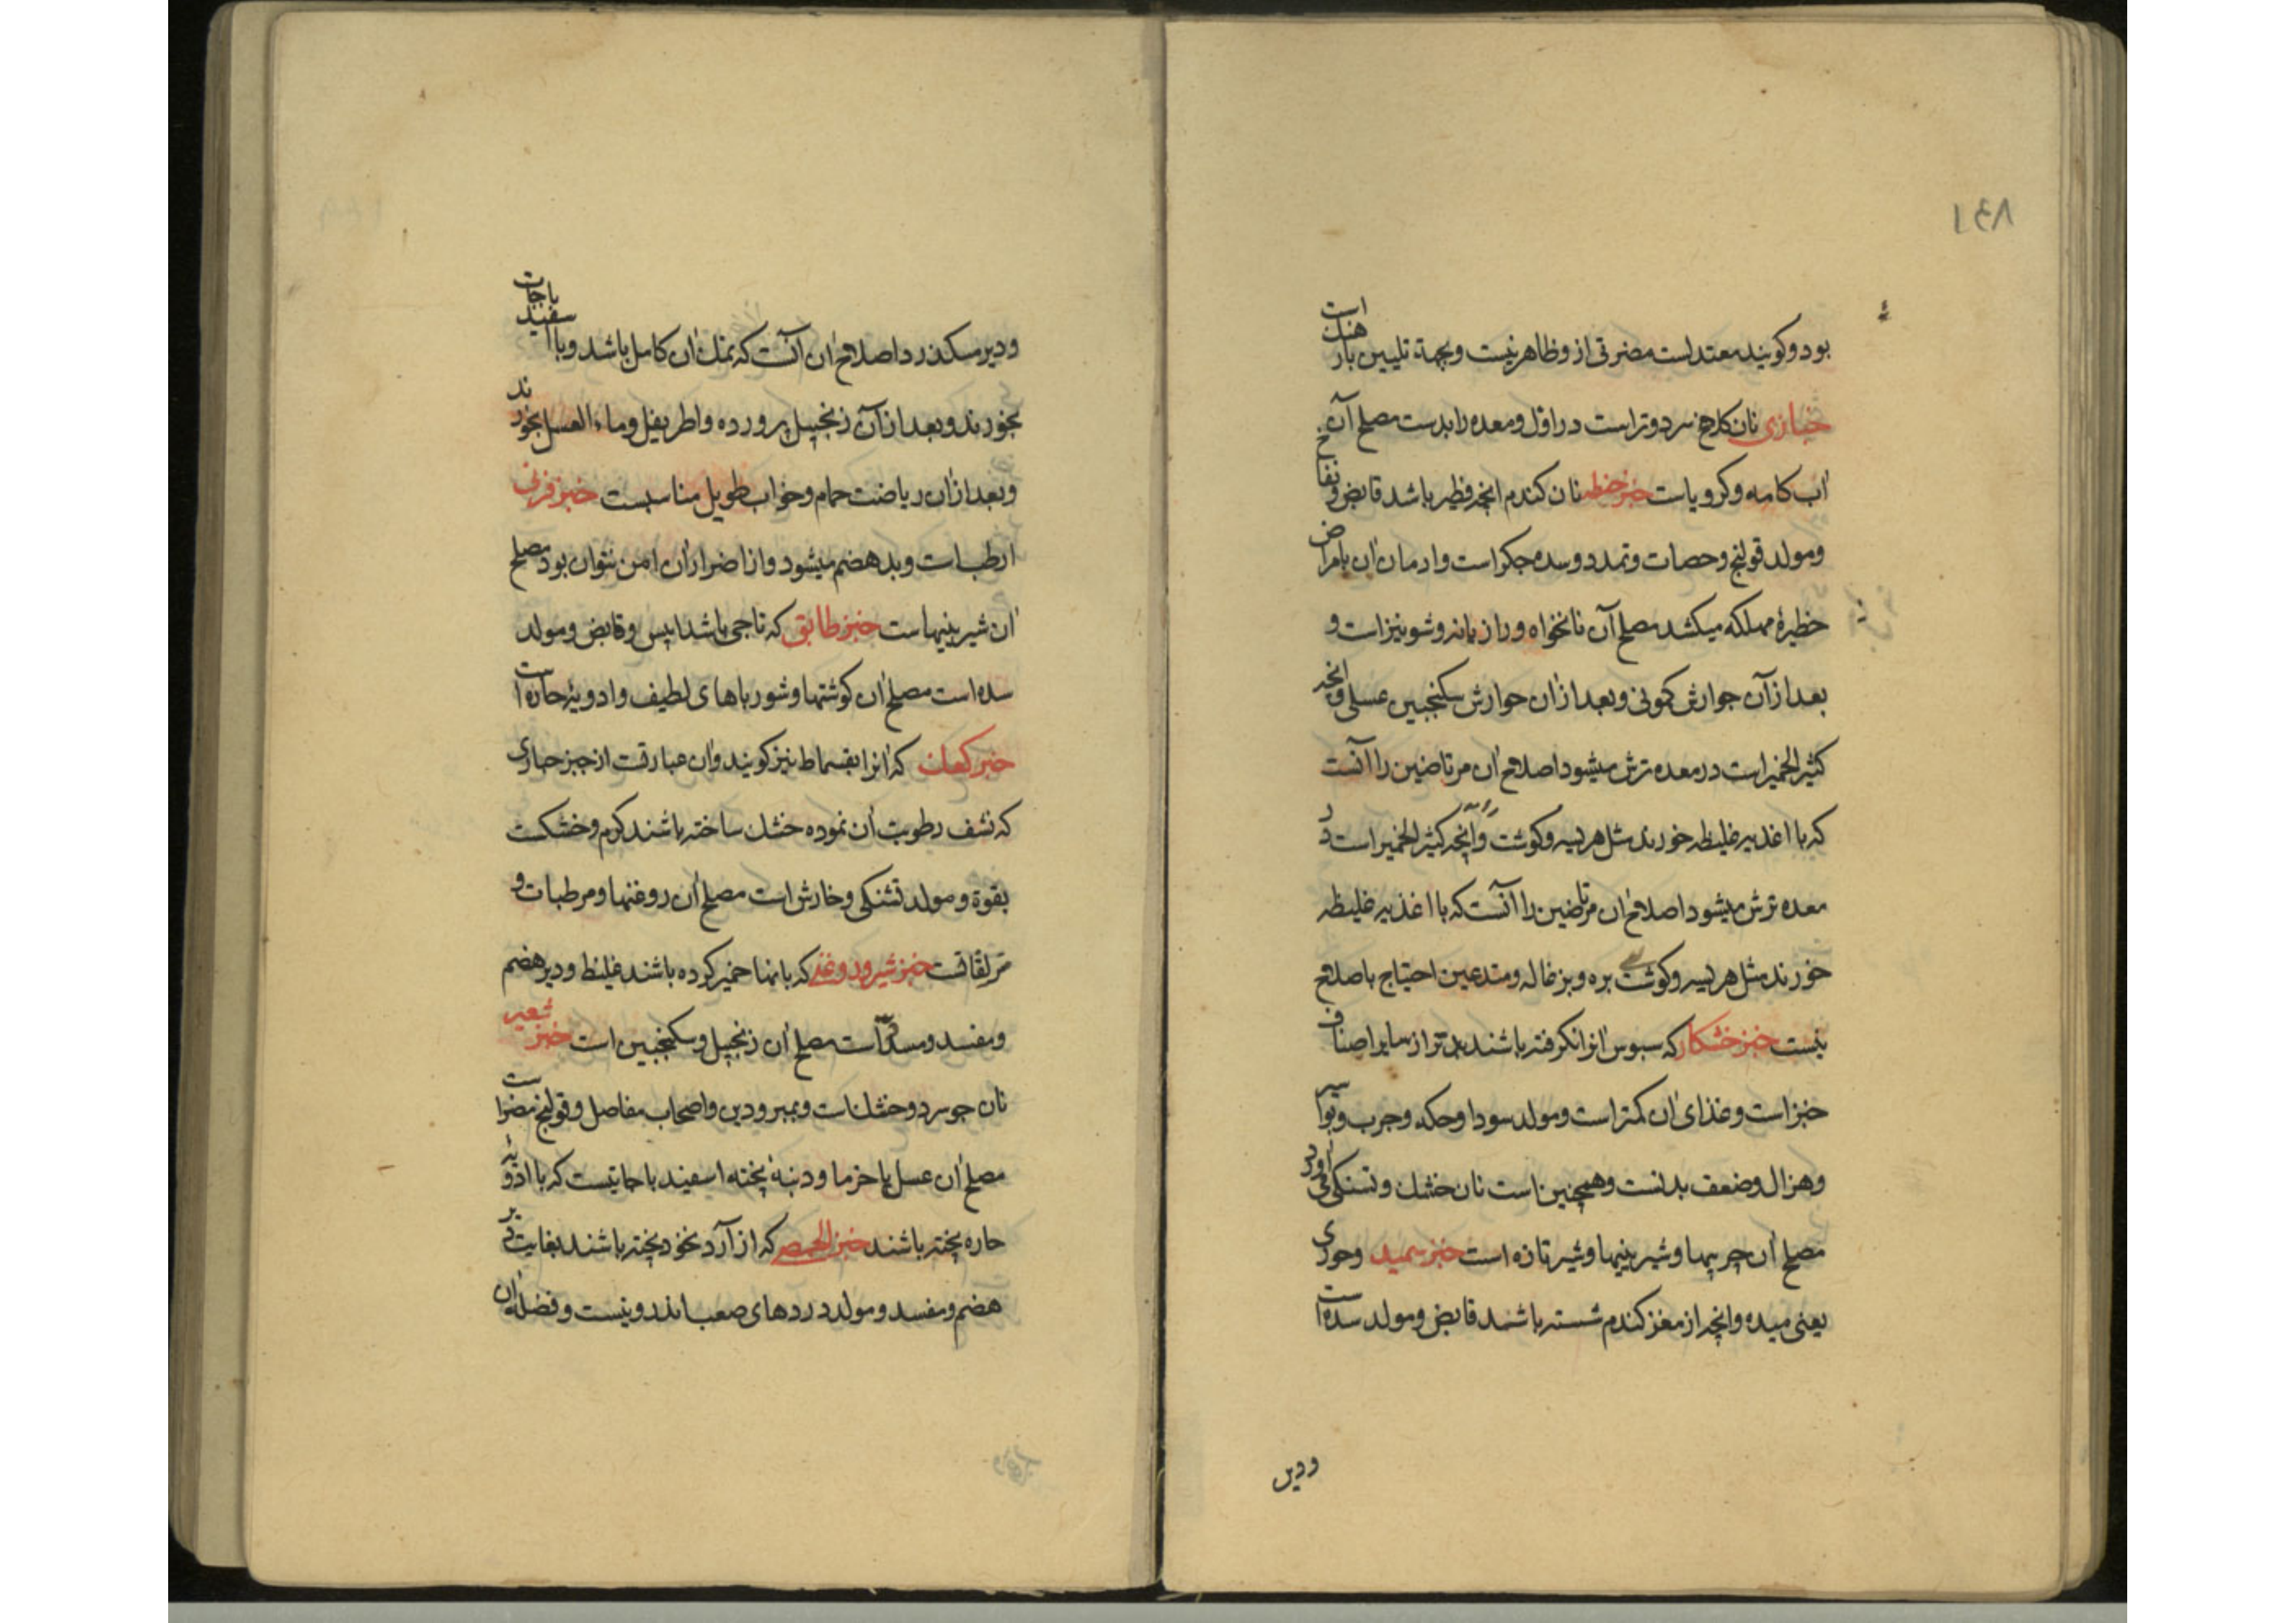 ۱۴۸
بود و کویند معتدلست مضرتی از و ظاهر نیست و بجهة تلیین بار هنک است
خبازی نان کلاخ سرد و تر است در اول و معده را بدست مصلح آن
اب کامه و کرویاست خبز حنطه نان کندم انچه فطیر باشد قابض و نفاخ
و مولد قولنج و حصات و تمدد و سده جکر است و ادمان ان بامراض
خطیرهٔ مهلکه میکشد مصلح آن نانخواه و رازیانه و شونیز است و
بعد از آن جوارش کمونی و بعد از ان جوارش سکنجبین عسلی و انچه
کثیر الخمیر است در معده ترش میشود اصلاح ان مرتاضین را آنست
که با اغذیه غلیظه خورند مثل هریسه و کوشت و آنچه کثیر الخمیر است در
معده ترش میشود اصلاح ان مرتاضین را آنست که با اغذیه غلیظه
خورند مثل هریسه و کوشت بره و بزغاله و متدعین احتیاج باصلاح
نیست خبز خشکار که سبوس انرا نکرفته باشند بدتر از سایر اصناف
خبز است و غذای ان کمتر است و مولد سودا و حکه و جرب و بواسیر
و هزال و ضعف بدنست و همچنین است نان خشک و تشنکی آورد
مصلح ان چربیها و شیرینیها و شیر تازه است خبز سمید و حوری
یعنی میده و انچه از مغز کندم شسته باشند قابض و مولد سده است
و دیر
و دیر میکذرد اصلاح ان آنست که نمک ان کامل باشد و با اسفید باجات
بخورند و بعد از آن زنجبیل پرورده و اطریفل و ماء العسل بخورند
و بعد از ان ریاضت حمام و خواب طویل مناسبست خبز فرنی
ارطب است و بد هضم میشود و از اضرار ان امن نتوان بود مصلح
ان شیرینیهاست خبز طابق که تاجی باشد ایبس و قابض و مولد
سده است مصلح ان کوشتها و شورباهای لطیف و ادویهٔ حاره است
خبز کعک که انرا بقسماط نیز کویند و ان عبارتست از خبز حواری
که نشف رطوبت ان نموده خشک ساخته باشند کرم و خشکست
بقوة و مولد تشنکی و خارش است مصلح ان روغنها و مرطبات و
مزلقاتست خبز شیر و روغن که بانها خمیر کرده باشند غلیظ و دیر هضم
و مفسد و مسدد است مصلح ان زنجبیل و سکنجبین است خبز شعیر
نان جو سرد و خشک است و بمبرودین و اصحاب مفاصل و قولنج مضر است
مصلح ان عسل یا خرما و دنبهٔ پخته اسفید باجاتیست که با ادویهٔ
حاره پخته باشند خبز الحمص که از آرد نخود پخته باشند بغایت دیر
هضم و مفسد و مولد دردهای صعب و نیست و فضلهٔ ان